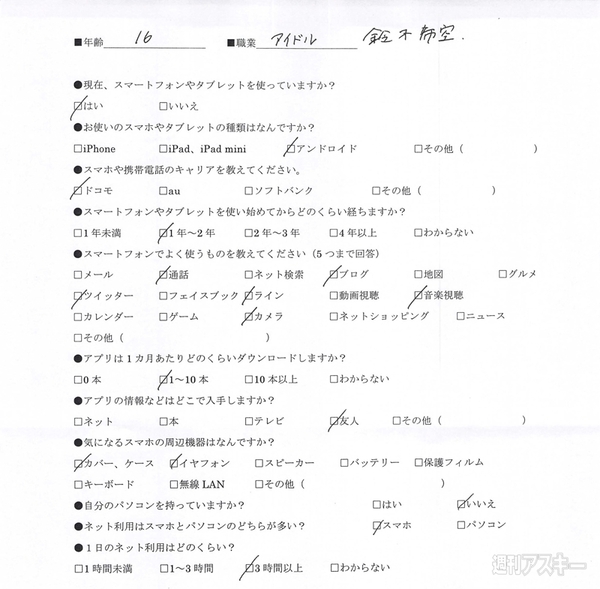 ■年齢 16 ■職業 アイドル 鈴木
●現在、スマートフォンやタブレットを使っていますか？
☑はい □いいえ
●お使いのスマホやタブレットの種類はなんですか？
□iPhone □iPad、iPad mini ☑アンドロイド □その他（ ）
●スマホや携帯電話のキャリアを教えてください。
☑ドコモ □au □ソフトバンク □その他（ ）
●スマートフォンやタブレットを使い始めてからどのくらい経ちますか？
□1年未満 ☑1年～2年 □2年～3年 □4年以上 □わからない
●スマートフォンでよく使うものを教えてください（5つまで回答）
□メール ☑通話 □ネット検索 ☑ブログ □地図 □グルメ
☑ツイッター □フェイスブック ☑ライン □動画視聴 ☑音楽視聴
□カレンダー □ゲーム ☑カメラ □ネットショッピング □ニュース
□その他（ ）
●アプリは1カ月あたりどのくらいダウンロードしますか？
□0本 ☑1～10本 □10本以上 □わからない
●アプリの情報などはどこで入手しますか？
□ネット □本 □テレビ ☑友人 □その他（ ）
●気になるスマホの周辺機器はなんですか？
☑カバー、ケース ☑イヤフォン □スピーカー □バッテリー □保護フィルム
□キーボード □無線LAN □その他（ ）
●自分のパソコンを持っていますか？ □はい ☑いいえ
●ネット利用はスマホとパソコンのどちらが多い？ ☑スマホ □パソコン
●1日のネット利用はどのくらい？
□1時間未満 □1～3時間 ☑3時間以上 □わからない
週刊アスキー